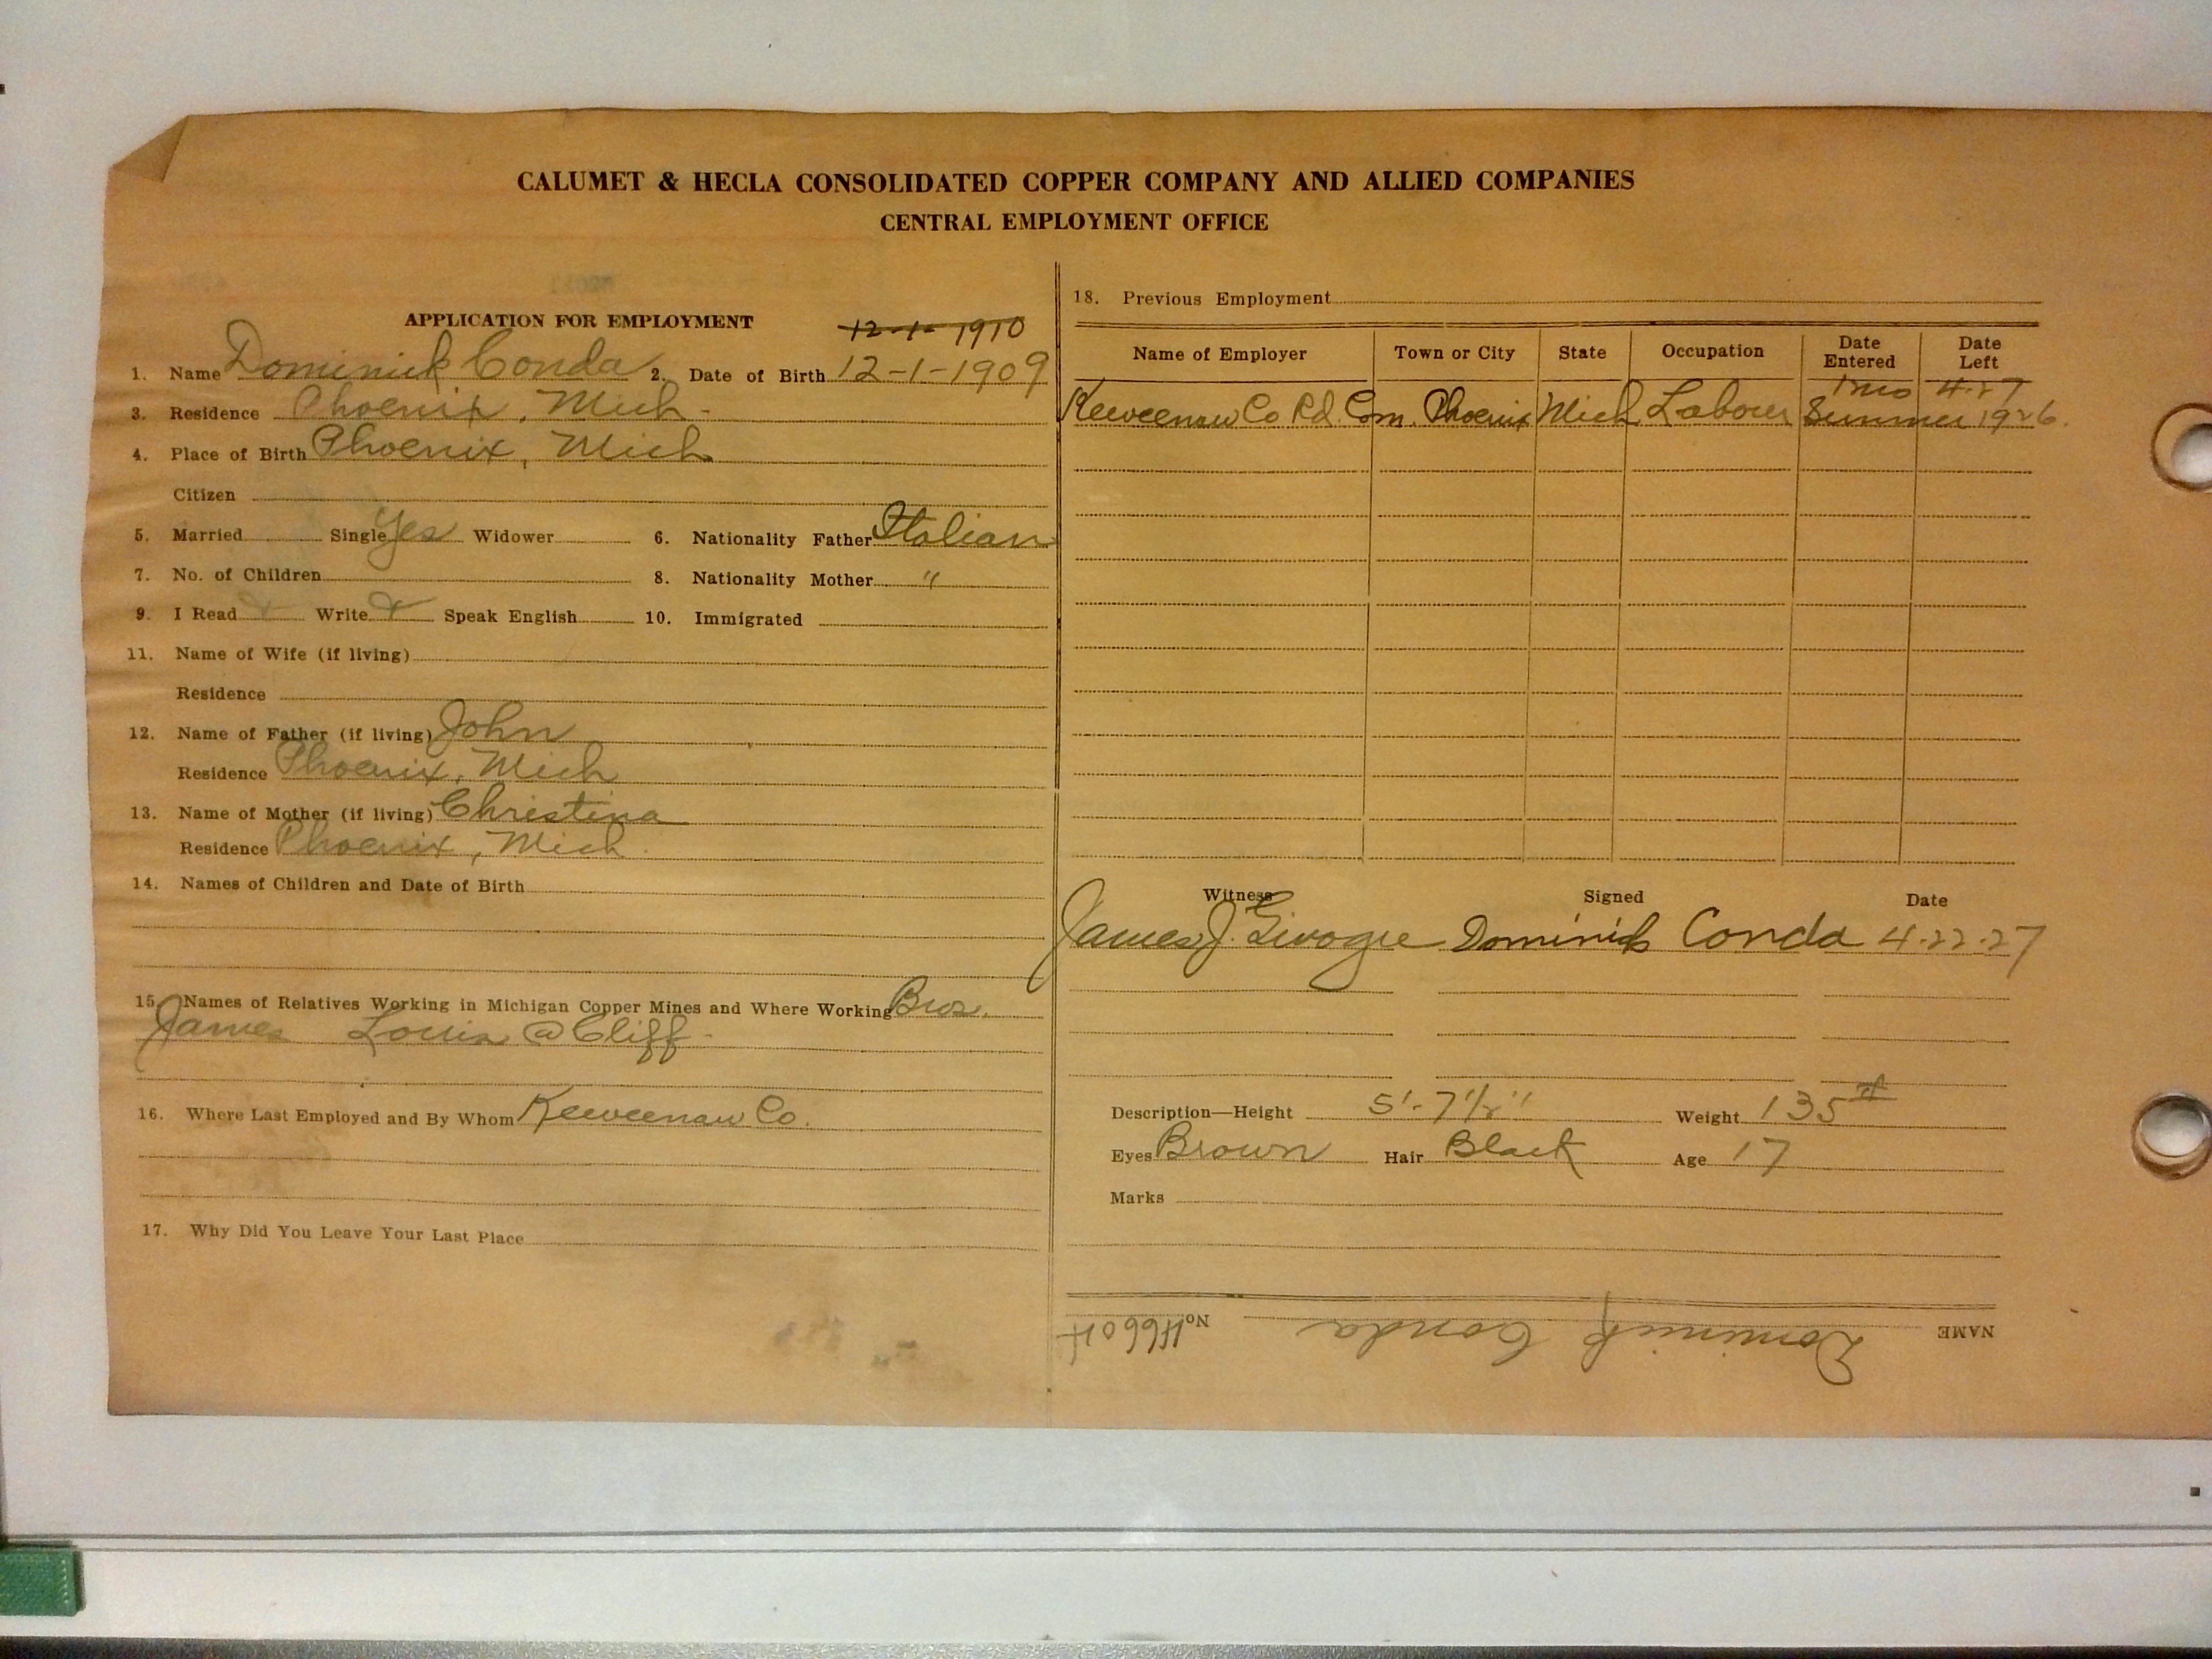 CALUMET & HECLA CONSOLIDATED COPPER COMPANY AND ALLIED COMPANIES
CENTRAL EMPLOYMENT OFFICE
APPLICATION FOR EMPLOYMENT
12-1-1910
1. Name Dominick Conda 2. Date of Birth 12-1-1909
3. Residence Phoenix, Mich.
4. Place of Birth Phoenix, Mich.
Citizen
5. Married Single Yes Widower 6. Nationality Father Italian
7. No. of Children 8. Nationality Mother "
9. I Read x Write x Speak English 10. Immigrated
11. Name of Wife (if living)
Residence
12. Name of Father (if living) John
Residence Phoenix, Mich
13. Name of Mother (if living) Christina
Residence Phoenix, Mich.
14. Names of Children and Date of Birth
15. Names of Relatives Working in Michigan Copper Mines and Where Working Bros.
James Louis @ Cliff
16. Where Last Employed and By Whom Keweenaw Co.
17. Why Did You Leave Your Last Place
18. Previous Employment
Name of Employer Town or City State Occupation Date Entered Date Left
1 mo 4-27
Keweenaw Co Rd. Com. Phoenix Mich Labour Summer 1926.
Witness Signed Date
James J. Dominick Conda 4-22-27
Description—Height 5'-7 1/2" Weight 135 #
Eyes Brown Hair Black Age 17
Marks
NAME Dominick Conda No. 46604